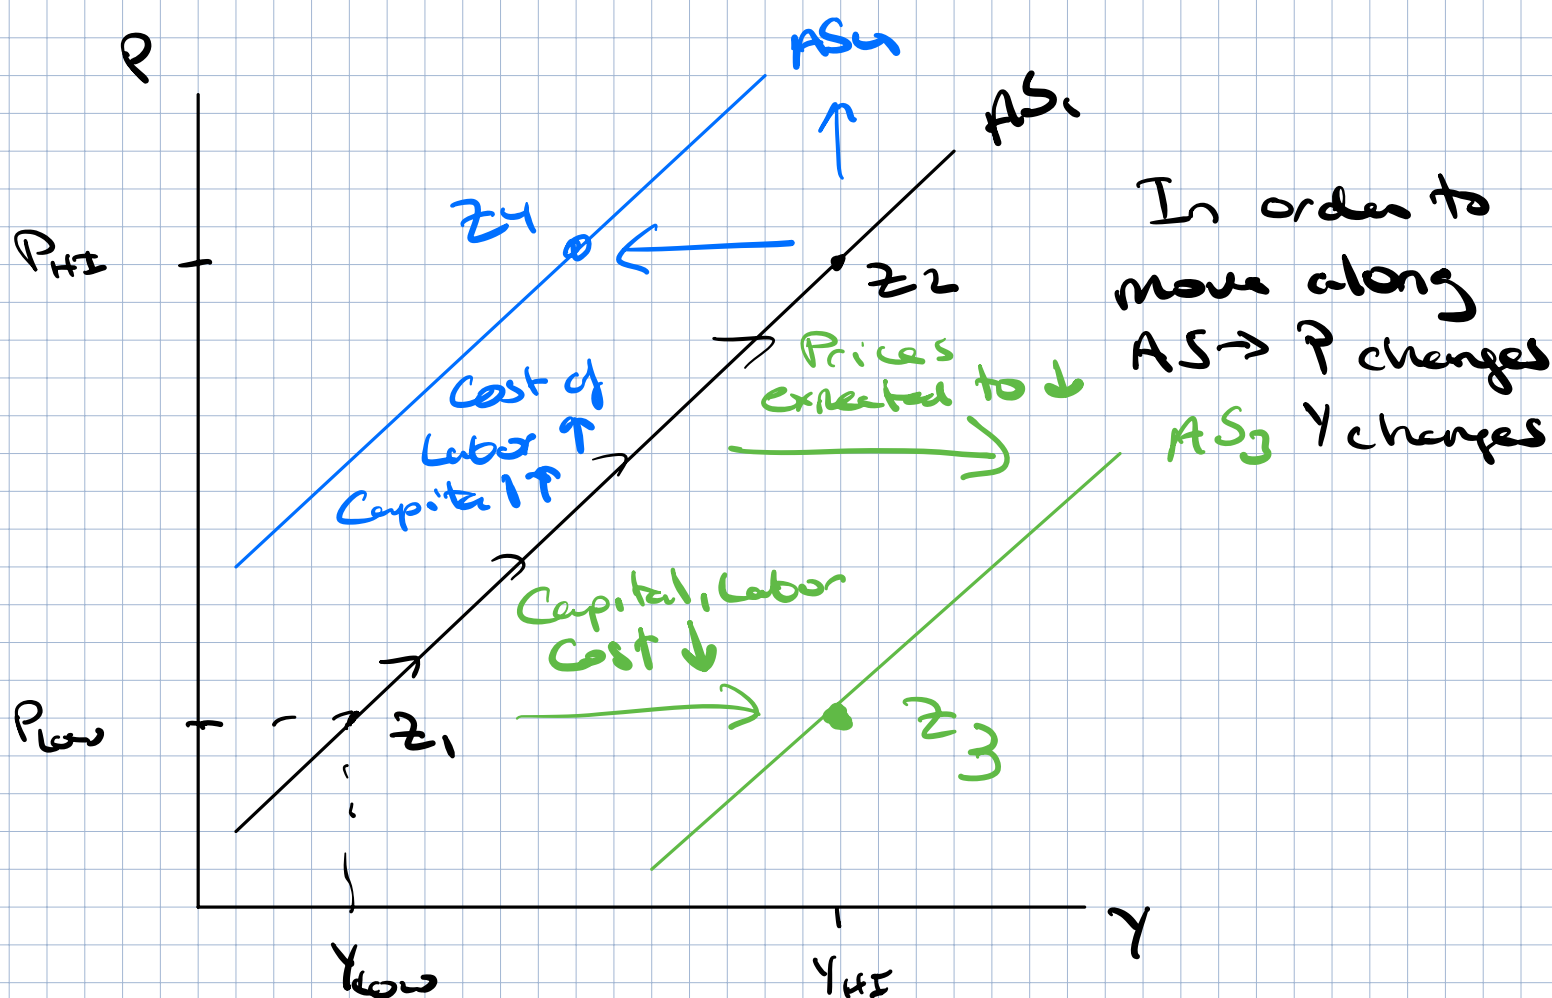 P
AS4
AS1
In order to
move along
AS → P changes
Y changes
Z4
P HI
Z2
Prices
expected to ↓
Cost of
Labor ↑
Capital ↑
AS3
Capital, Labor
Cost ↓
P Low
Z1
Z3
Y
Y Low
Y HI